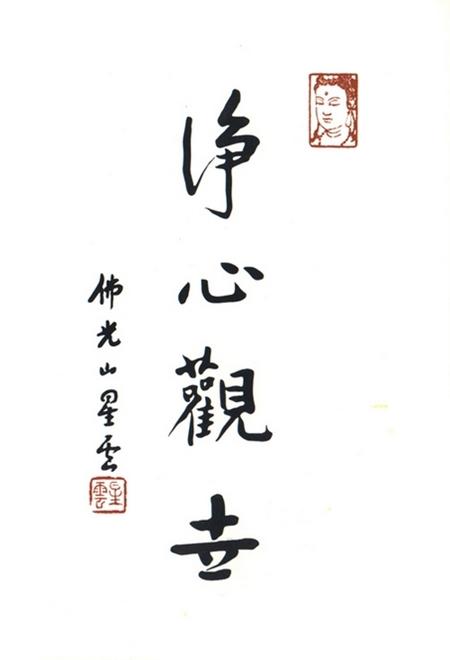 淨心觀世
佛光山星雲
星雲